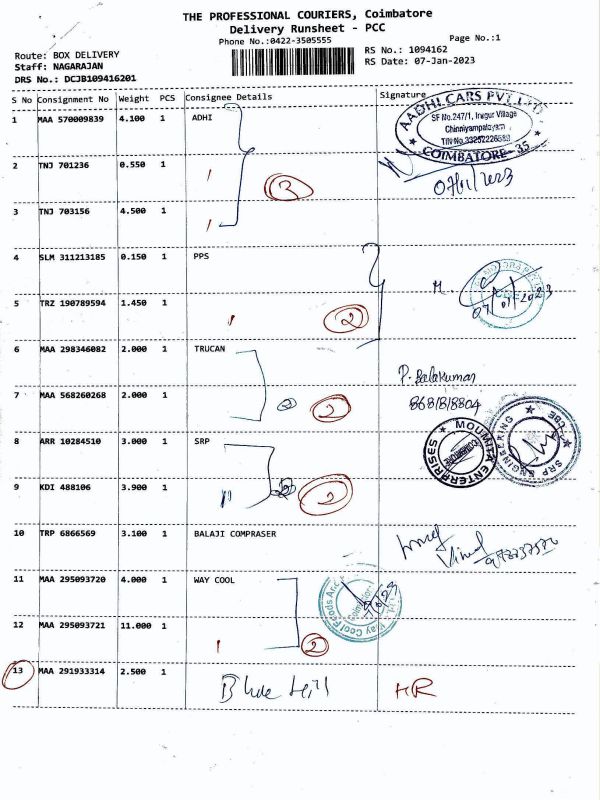 THE PROFESSIONAL COURIERS, Coimbatore
Delivery Runsheet - PCC
Phone No.:0422-3505555
Page No.:1
Route: BOX DELIVERY
RS No.: 1094162
Staff: NAGARAJAN
RS Date: 07-Jan-2023
DRS No.: DCJB109416201
S No Consignment No Weight PCS Consignee Details Signature
1 MAA 570009839 4.100 1 ADHI
AADHI CARS PVT LTD
SF No.247/1, Irugur Village
Chinniyampalayam
COIMBATORE - 35
2 TNJ 701236 0.550 1
07/01/2023
3 TNJ 703156 4.500 1
4 SLM 311213185 0.150 1 PPS
5 TRZ 190789594 1.450 1
2
07/01/2023
6 MAA 298346082 2.000 1 TRUCAN
P. Balakumar
7 MAA 568260268 2.000 1
2
8 ARR 10284510 3.000 1 SRP
MOUMITA ENTERPRISES
SRP ENGINEERING CBE
9 KDI 488106 3.900 1
2
10 TRP 6866569 3.100 1 BALAJI COMPRASER
11 MAA 295093720 4.000 1 WAY COOL
Way Cool Foods And
12 MAA 295093721 11.000 1
2
13 MAA 291933314 2.500 1 Blue Hill HR